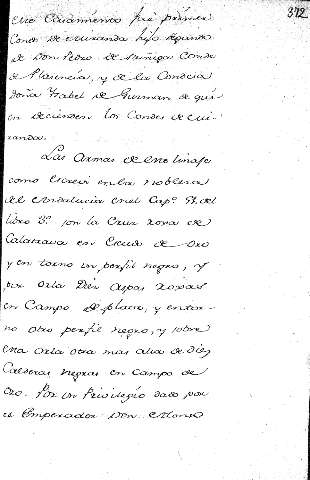 372
este Casamiento fue primer
Conde de Miranda hijo segundo
de Don Pedro de Zuñiga Conde
de Plasencia, y de la Condesa
Doña Ysabel de Guzman de qui-
en decienden los Condes de Mi-
randa.
Las Armas de este linaje
como escreví en la nobleza
del Andalucia en el Capº 57. del
libro 2º son la Cruz roxa de
Calatrava en Escudo de Oro
y en torno un perfil negro, y
por orla Diez aspas roxas
en Campo de plata, y en tor-
no otro perfil negro, y sobre
esta orla otra mas alta de diez
Calderas negras en campo de
Oro. Por un Privilegio dado por
el Emperador Don Alonso